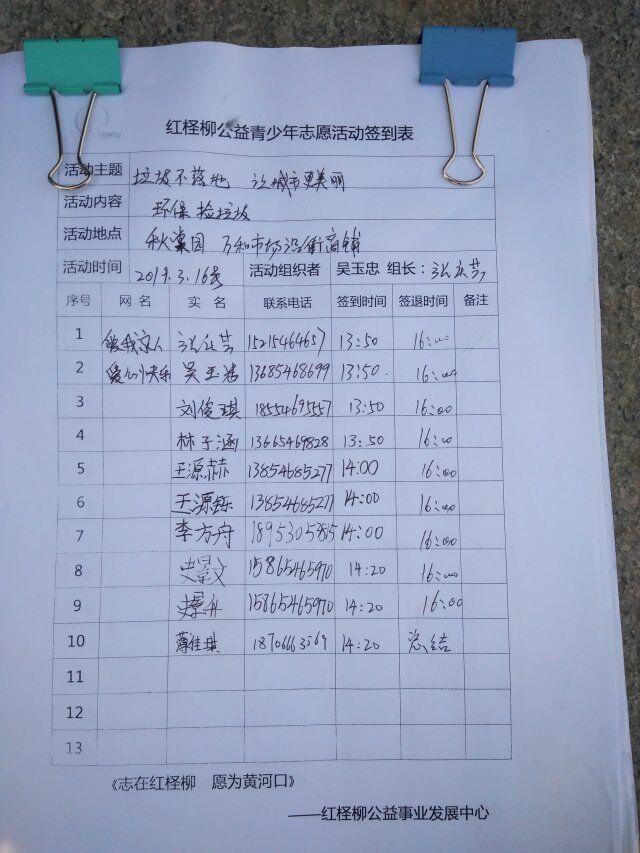 红柽柳公益青少年志愿活动签到表
活动主题 垃圾不落地 让城市更美丽
活动内容 环保捡垃圾
活动地点 秋棠园 万和市场沿街商铺
活动时间 2019.3.16号 活动组织者 吴玉忠 组长:
序号 网名 实名 联系电话 签到时间 签退时间 备注
1 15215464657 13:50 16:00
2 吴玉忠 13685468699 13:50. 16:00
3 刘俊琪 18554695557 13:50 16:00
4 林子涵 13665469828 13:50 16:00
5 王源赫 13854685277 14:00 16:00
6 王源铄 13854685277 14:00 16:00
7 李方舟 14:00 16:00
8 史景文 15865465970 14:20 16:00
9 15865465970 14:20 16:00
10 薄佳琪 18706663569 14:20 总结
11
12
13
《志在红柽柳 愿为黄河口》
——红柽柳公益事业发展中心